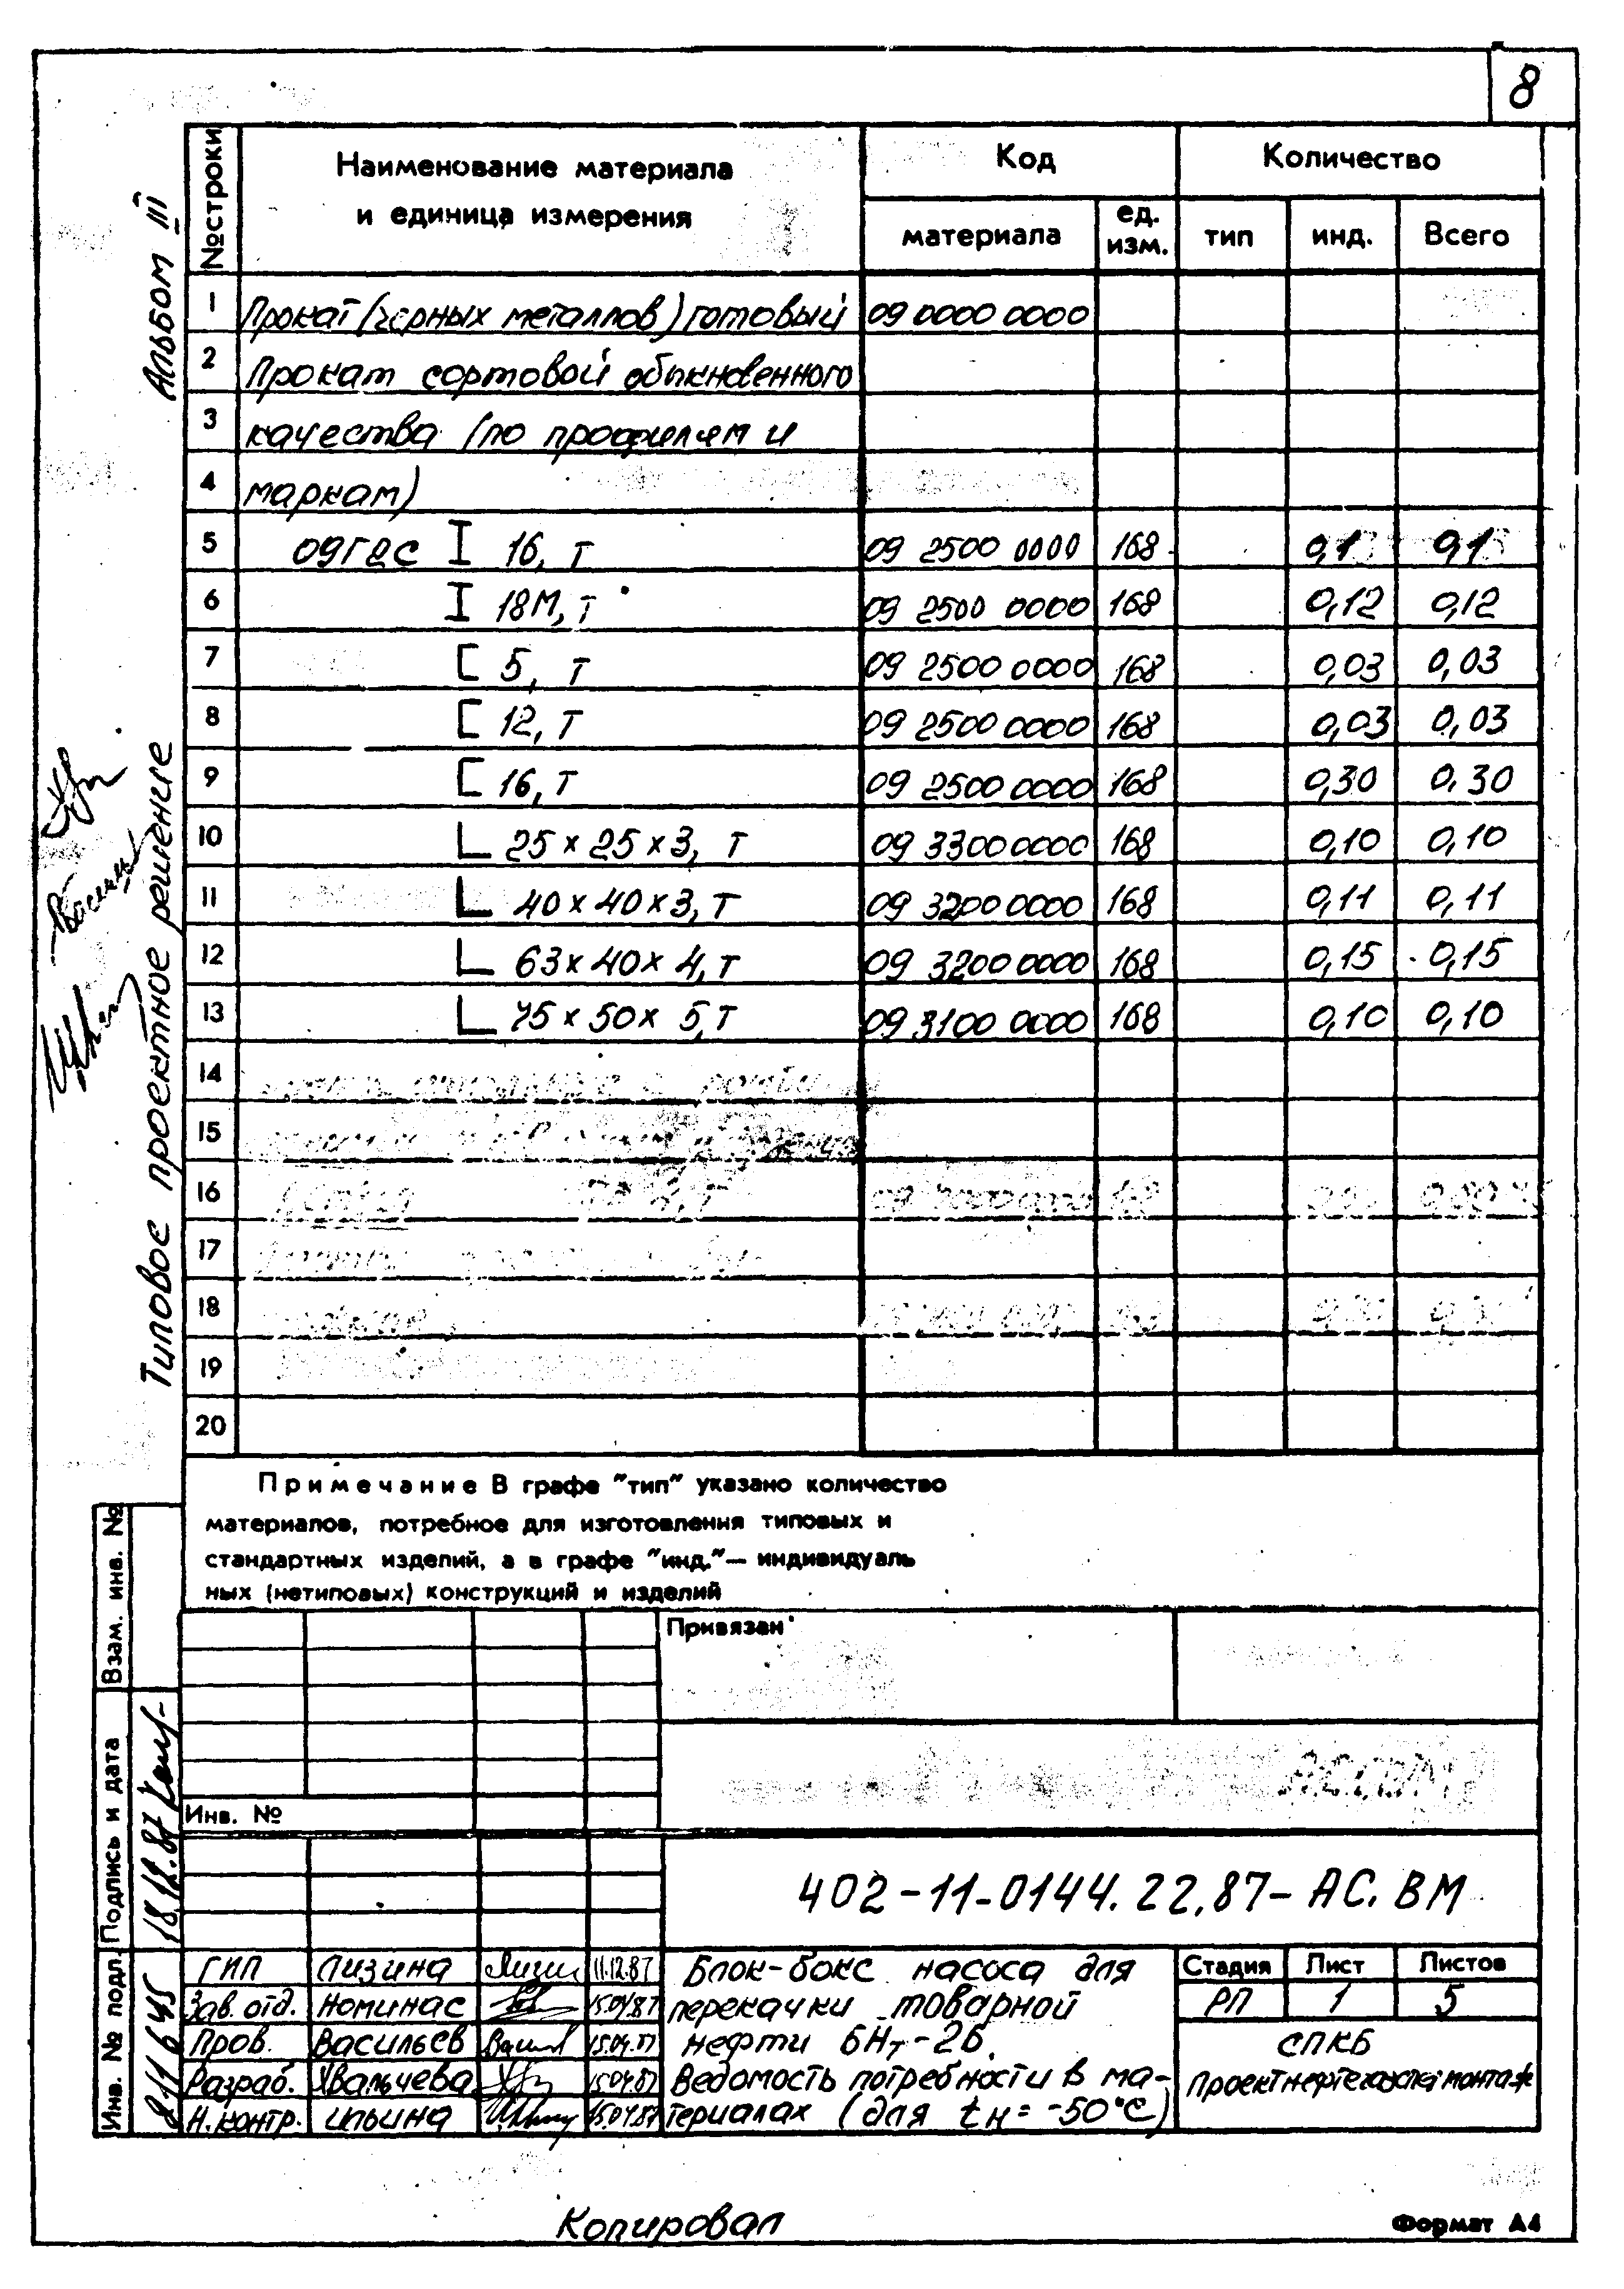 8
Альбом III
Типовое проектное решение
№ строки
Наименование материала
и единица измерения
Код
Количество
материала
ед.
изм.
тип
инд.
Всего
1 Прокат (черных металлов) готовый 09 0000 0000
2 Прокат сортовой обыкновенного
3 качества (по профилям и
4 маркам)
5 09Г2С I 16, т 09 2500 0000 168 0,1 0,1
6 I 18М, т 09 2500 0000 168 0,12 0,12
7 [ 5, т 09 2500 0000 168 0,03 0,03
8 [ 12, т 09 2500 0000 168 0,03 0,03
9 [ 16, т 09 2500 0000 168 0,30 0,30
10 L 25 х 25 х 3, т 09 3300 0000 168 0,10 0,10
11 L 40 х 40 х 3, т 09 3200 0000 168 0,11 0,11
12 L 63 х 40 х 4, т 09 3200 0000 168 0,15 0,15
13 L 75 х 50 х 5, т 09 3100 0000 168 0,10 0,10
14
15
16
17
18
19
20
Примечание В графе "тип" указано количество
материалов, потребное для изготовления типовых и
стандартных изделий, а в графе "инд." — индивидуаль
ных (нетиповых) конструкций и изделий
Привязан
Инв. №
Взам. инв. №
Подпись и дата
18.12.87
Инв. № подл.
811645
402-11-0144.22.87-АС.ВМ
ГИП Лизина 11.12.87
Зав. отд. Номинас 15.04.87
Пров. Васильев 15.04.87
Разраб. Хвальчева 15.04.87
Н. контр. Ильина 15.04.87
Блок-бокс насоса для
перекачки товарной
нефти БНт-2Б.
Ведомость потребности в ма-
териалах (для tн = -50°С)
Стадия Лист Листов
РП 1 5
СПКБ
Проектнефтегазспецмонтаж
Копировал
Формат А4